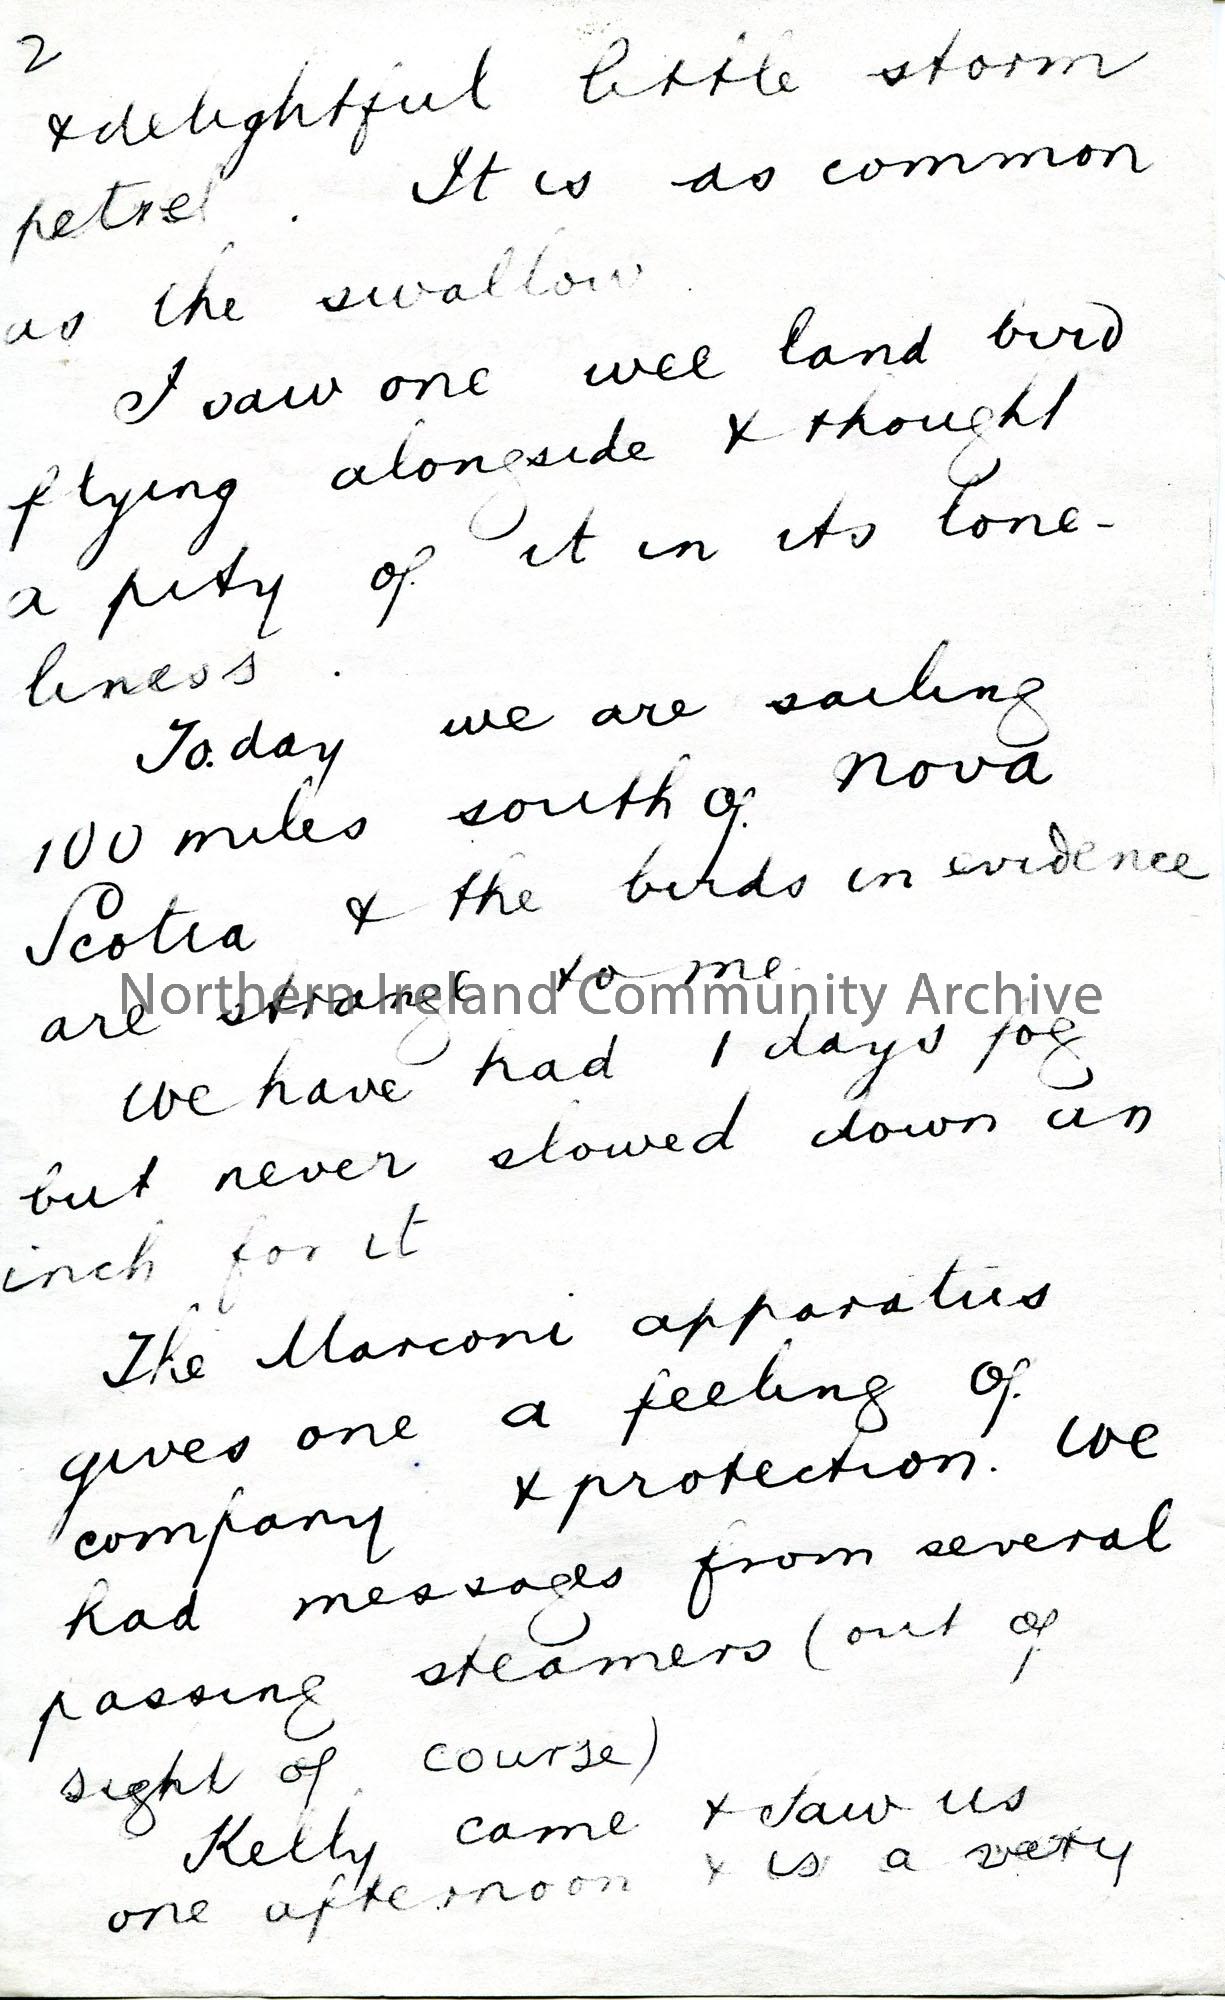 2
& delightful little storm
petrel. It is as common
as the swallow.
I saw one wee land bird
flying alongside & thought
a pity of it in its lone-
liness.
To.day we are sailing
100 miles south of Nova
Scotia & the birds in evidence
are strange to me.
Northern Ireland Community Archive
We have had 1 days fog
but never slowed down an
inch for it
The Marconi apparatus
gives one a feeling of
company & protection. We
had messages from several
passing steamers (out of
sight of course)
Kelly came & saw us
one afternoon & is a very